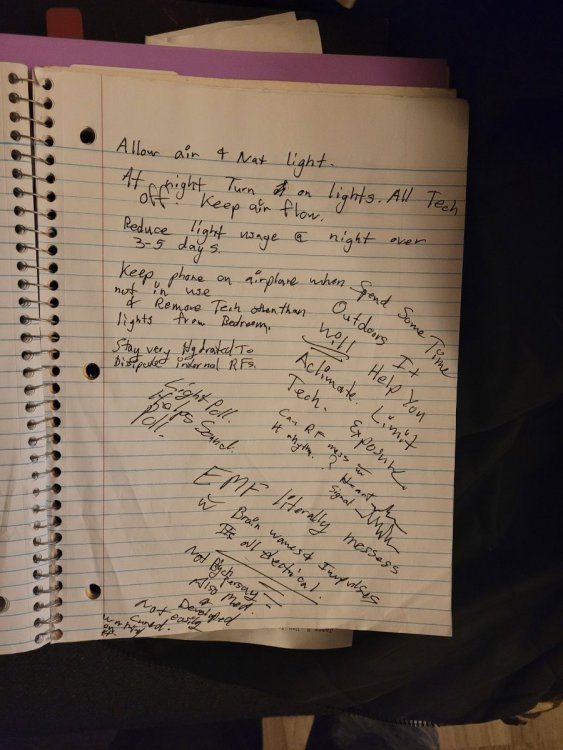 Allow air & Nat light.
At night Turn on lights. All Tech
off Keep air flow.
Reduce light usage @ night over
3-5 days.
Keep phone on airplane when
not in use
& Remove Tech other than
lights from Bedroom.
Stay very Hydrated To
Dissipate internal RFs.
Spend Some Time
Outdoors It
will Help You
Aclimate. Limit
Tech. Exposure.
Light Poll.
Helps Sound
Poll.
Can RF mess w
H rhythm.?
Heart
Signal
EMF literally messes
w Brain waves & Impulses
Its all electrical.
Not Psych
Also Med.
Not Developed
easily
Cured.